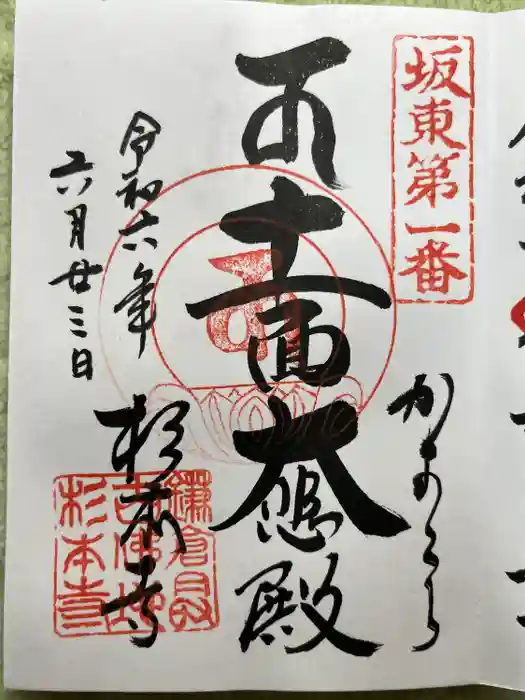 坂東第一番
かまくら
十一面大悲殿
令和六年
六月廿三日
杉本寺
鎌倉最
古佛地
杉本寺